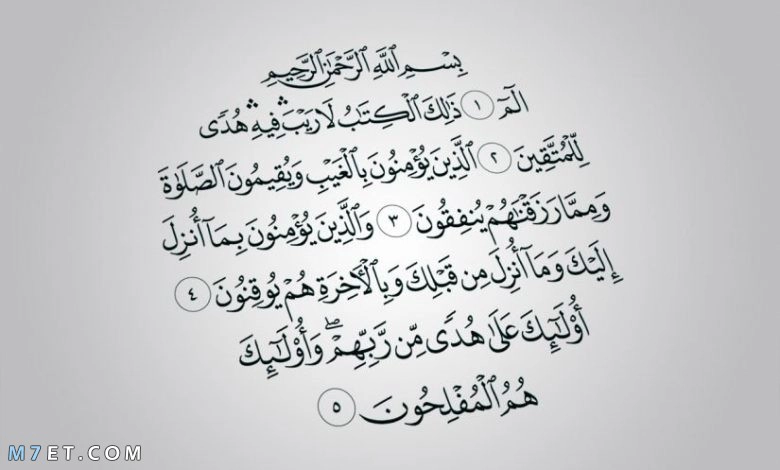 بِسْمِ ٱللَّهِ ٱلرَّحْمَٰنِ ٱلرَّحِيمِ
الٓمٓ ١ ذَٰلِكَ ٱلْكِتَٰبُ لَا رَيْبَ ۛ فِيهِ ۛ هُدًى
لِّلْمُتَّقِينَ ٢ ٱلَّذِينَ يُؤْمِنُونَ بِٱلْغَيْبِ وَيُقِيمُونَ ٱلصَّلَوٰةَ
وَمِمَّا رَزَقْنَٰهُمْ يُنفِقُونَ ٣ وَٱلَّذِينَ يُؤْمِنُونَ بِمَآ أُنزِلَ
إِلَيْكَ وَمَآ أُنزِلَ مِن قَبْلِكَ وَبِٱلْءَاخِرَةِ هُمْ يُوقِنُونَ ٤
أُو۟لَٰٓئِكَ عَلَىٰ هُدًى مِّن رَّبِّهِمْ ۖ وَأُو۟لَٰٓئِكَ
هُمُ ٱلْمُفْلِحُونَ ٥
M7ET.COM